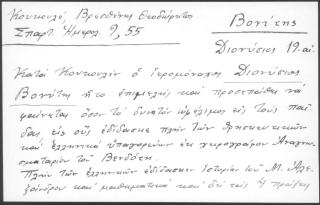 Κουκουλές, Βρεσθένης Θεοδώρητος
Σπαρτ. Ημερολ. 9, 55
Βονίτης
Διονύσιος 19. αι.
Κατά Κουκουλέν ὁ ἱερομόναχος Διονύσιος
Βονίτης ἦτο ἐπιμελής καί προσεπάθει νά
φαίνεται ὅσον τό δυνατόν ὠφέλιμος εἰς τούς παῖ-
δας, εἰς οὕς ἐδίδασκε πλήν τῶν θρησκευτικῶν
καί ἑλληνικά ὑπαγορεύων ἐκ χειρογράφου Ἀναγνω-
σματαρίου τοῦ Βενδότη.
Πλήν τῶν ἑλληνικῶν ἐδίδασκεν Ἱστορίαν τοῦ Μ. Ἀλε-
ξάνδρου καί μαθηματικά καί δή τάς 4 πράξεις